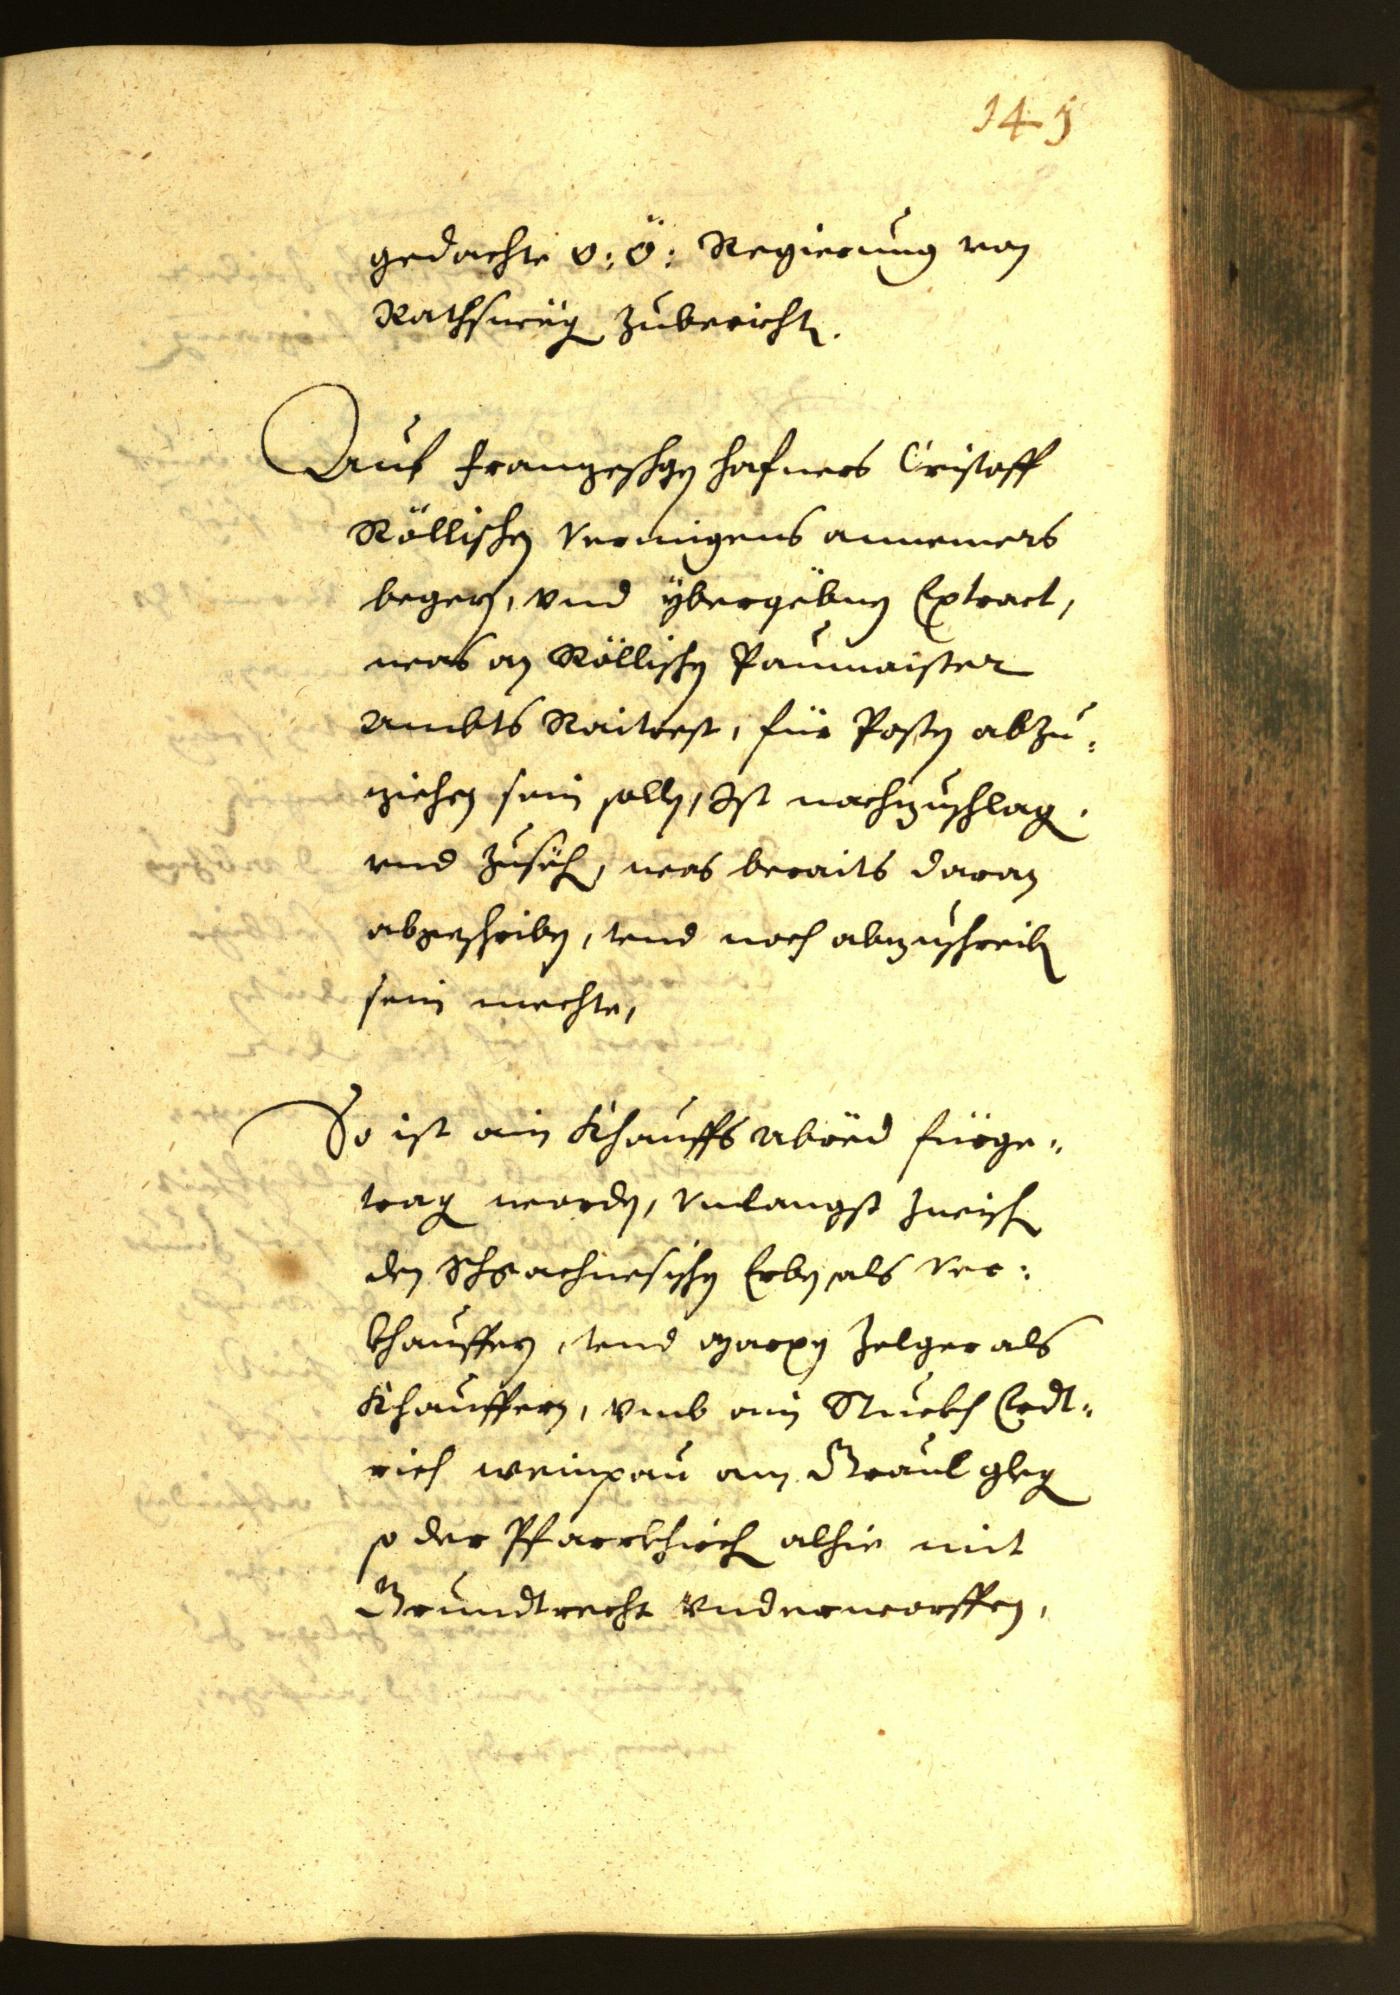 145
gedachte o: ö: Regierung von
Rathsweg zubericht.
Auf Franzeschgen Hafners Cristoff
Röllischen Vermigens annemers
begern, vnd ybergebnen Extract,
was an Röllischen Paumaister
Ambts Raitrest, für Posten abzu¬
ziechen sein sollen, Ist nachzuschlag.
vnd zusech, was beraits daran
abgeschriben, vnd noch abzuschreib
sein mechte,
So ist ain Khauffs abred fürge¬
trag worden, Vnlangst zwisch
den Erben als Ver¬
khauffern, vnd Marxen Zelger als
Khauffern, vmb ain Stuckh Erdt¬
rich weinpau am gleg
so der Pfarrkhirch alhie mit
Grundtrecht Vnderworffen,